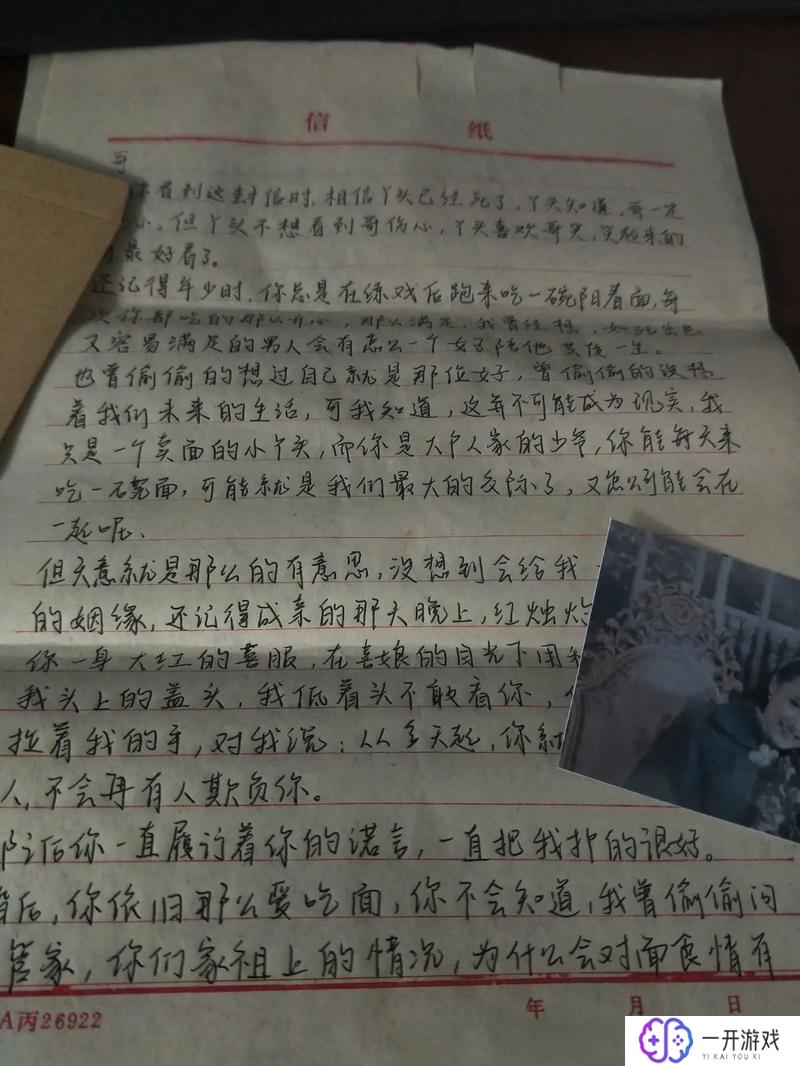 信 纸
哥
你看到这封信时,相信丫头已经死了,丫头知道,哥一定
心,但丫头不想看到哥伤心,丫头喜欢哥笑,笑起来的
最好看了。
还记得年少时,你总是在练戏后跑来吃一碗阳春面,每
次你都吃的那么开心,那么满足,我曾经想,如此出色
又容易满足的男人会有怎么一个女子陪他共度一生。
也曾偷偷的想过自己就是那位好,曾偷偷的设想
着我们未来的生活,可我知道,这并不可能成为现实,我
只是一个卖面的小丫头,而你是大户人家的少爷,你能每天来
吃一碗面,可能就是我们最大的交际了,又怎么可能会在
一起呢、
但天意就是那么的有意思,没想到会给我
的姻缘,还记得成亲的那天晚上,红烛
你一身大红的喜服,在喜娘的目光下用
我头上的盖头,我低着头不敢看你,
拉着我的手,对我说:从今天起,你就
人,不会再有人欺负你。
之后你一直履行着你的诺言,一直把我护的很好。
后,你依旧那么爱吃面,你不会知道,我曾偷偷问
管家,你们家祖上的情况,为什么会对面食情有
年 月 日
A丙26922
一开游戏
YI KAI YOU XI